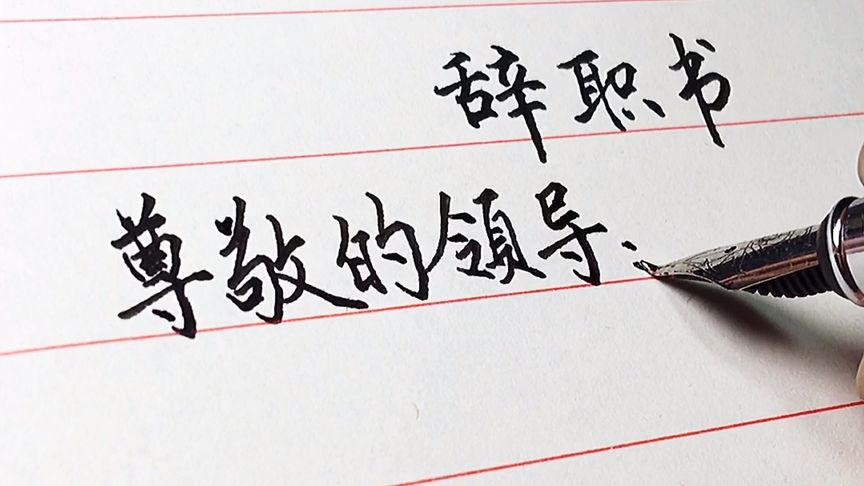 辞职书
尊敬的領导: